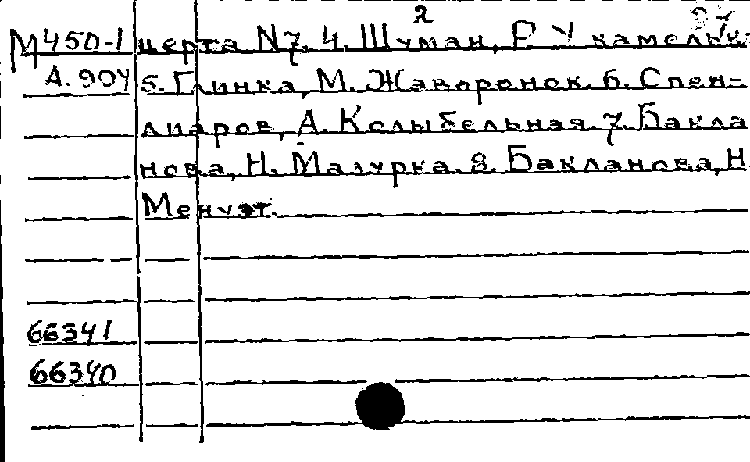 2
М450-1 церта N7. 4. Шуман, Р. У камелька
А.904 5. Глинка, М. Жаворонок. 6. Спен-
диаров, А. Колыбельная. 7. Бакла
нова, Н. Мазурка. 8. Бакланова, Н
Менуэт.
66341
66340